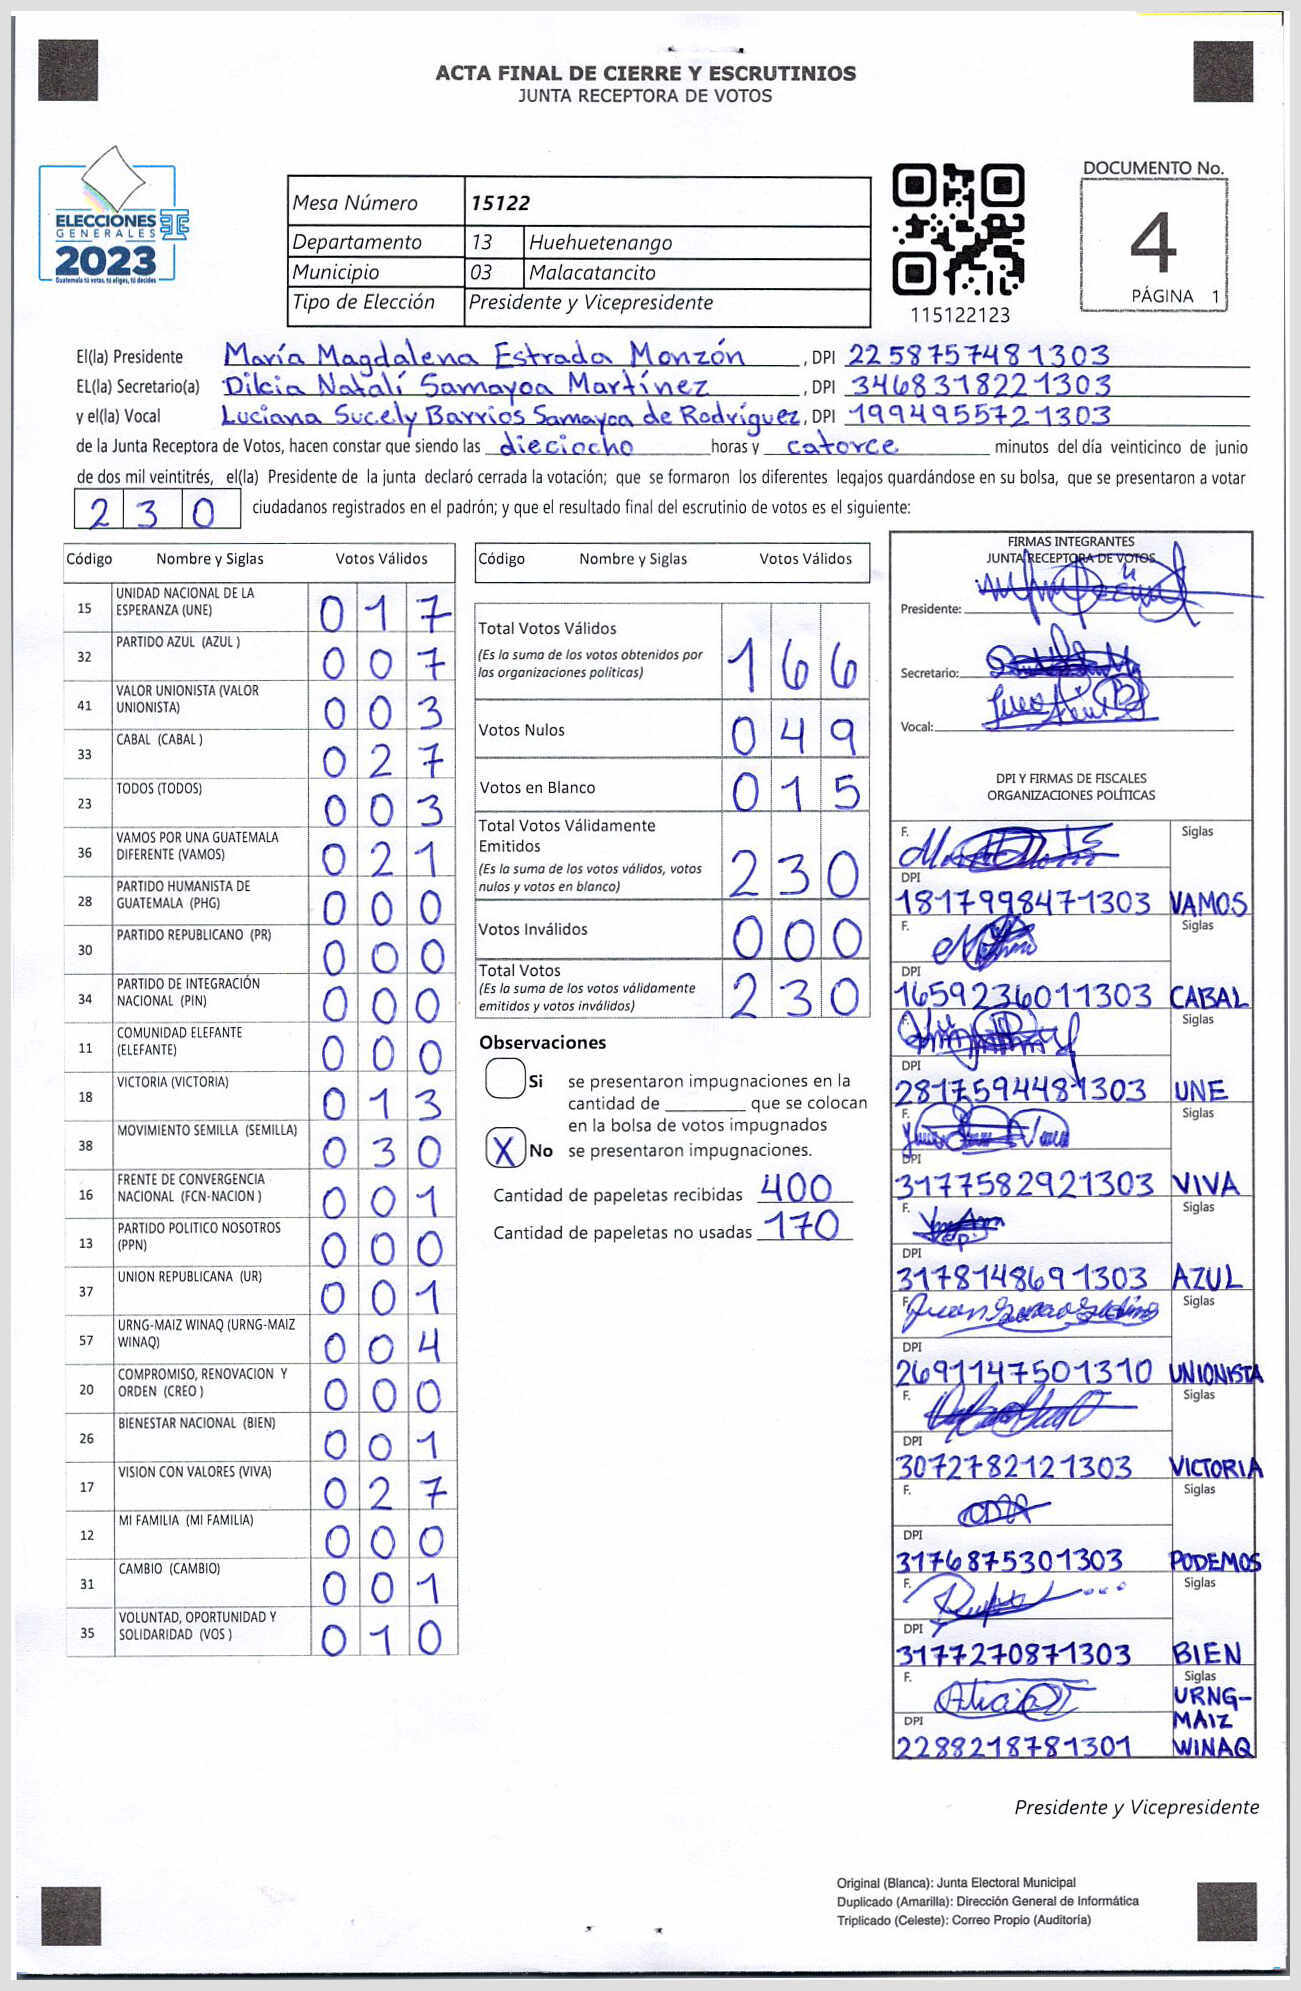 ACTA FINAL DE CIERRE Y ESCRUTINIOS
JUNTA RECEPTORA DE VOTOS
ELECCIONES
GENERALES
2023
Guatemala tú votas, tú eliges, tú decides
Mesa Número 15122
Departamento 13 Huehuetenango
Municipio 03 Malacatancito
Tipo de Elección Presidente y Vicepresidente
115122123
DOCUMENTO No.
4
PÁGINA 1
El(la) Presidente María Magdalena Estrada Monzón, DPI 2258757481303
EL(la) Secretario(a) Dilcia Natalí Samayoa Martínez, DPI 3468318221303
y el(la) Vocal Luciana Sucely Barrios Samayoa de Rodríguez, DPI 1994955721303
de la Junta Receptora de Votos, hacen constar que siendo las dieciocho horas y catorce minutos del día veinticinco de junio
de dos mil veintitrés, el(la) Presidente de la junta declaró cerrada la votación; que se formaron los diferentes legajos guardándose en su bolsa, que se presentaron a votar
230 ciudadanos registrados en el padrón; y que el resultado final del escrutinio de votos es el siguiente:
Código Nombre y Siglas Votos Válidos
15 UNIDAD NACIONAL DE LA ESPERANZA (UNE) 017
32 PARTIDO AZUL (AZUL ) 007
41 VALOR UNIONISTA (VALOR UNIONISTA) 003
33 CABAL (CABAL ) 027
23 TODOS (TODOS) 003
36 VAMOS POR UNA GUATEMALA DIFERENTE (VAMOS) 021
28 PARTIDO HUMANISTA DE GUATEMALA (PHG) 000
30 PARTIDO REPUBLICANO (PR) 000
34 PARTIDO DE INTEGRACIÓN NACIONAL (PIN) 000
11 COMUNIDAD ELEFANTE (ELEFANTE) 000
18 VICTORIA (VICTORIA) 013
38 MOVIMIENTO SEMILLA (SEMILLA) 030
16 FRENTE DE CONVERGENCIA NACIONAL (FCN-NACION ) 001
13 PARTIDO POLITICO NOSOTROS (PPN) 000
37 UNION REPUBLICANA (UR) 001
57 URNG-MAIZ WINAQ (URNG-MAIZ WINAQ) 004
20 COMPROMISO, RENOVACION Y ORDEN (CREO ) 000
26 BIENESTAR NACIONAL (BIEN) 001
17 VISION CON VALORES (VIVA) 027
12 MI FAMILIA (MI FAMILIA) 000
31 CAMBIO (CAMBIO) 001
35 VOLUNTAD, OPORTUNIDAD Y SOLIDARIDAD (VOS ) 010
Código Nombre y Siglas Votos Válidos
Total Votos Válidos 166
(Es la suma de los votos obtenidos por
las organizaciones políticas)
Votos Nulos 049
Votos en Blanco 015
Total Votos Válidamente
Emitidos 230
(Es la suma de los votos válidos, votos
nulos y votos en blanco)
Votos Inválidos 000
Total Votos 230
(Es la suma de los votos válidamente
emitidos y votos inválidos)
Observaciones
Si se presentaron impugnaciones en la
cantidad de ________ que se colocan
en la bolsa de votos impugnados
X No se presentaron impugnaciones.
Cantidad de papeletas recibidas 400
Cantidad de papeletas no usadas 170
FIRMAS INTEGRANTES
JUNTA RECEPTORA DE VOTOS
Presidente:
Secretario:
Vocal:
DPI Y FIRMAS DE FISCALES
ORGANIZACIONES POLÍTICAS
F. Siglas
DPI
1817998471303 VAMOS
F. Siglas
DPI
1659236011303 CABAL
F. Siglas
DPI
2817594481303 UNE
F. Siglas
DPI
3177582921303 VIVA
F. Siglas
DPI
3178148691303 AZUL
F. Siglas
DPI
2691147501310 UNIONISTA
F. Siglas
DPI
3072782121303 VICTORIA
F. Siglas
DPI
3176875301303 PODEMOS
F. Siglas
DPI
3177270871303 BIEN
F. Siglas
DPI
2288218781301 URNG-MAIZ WINAQ
Presidente y Vicepresidente
Original (Blanca): Junta Electoral Municipal
Duplicado (Amarilla): Dirección General de Informática
Triplicado (Celeste): Correo Propio (Auditoría)